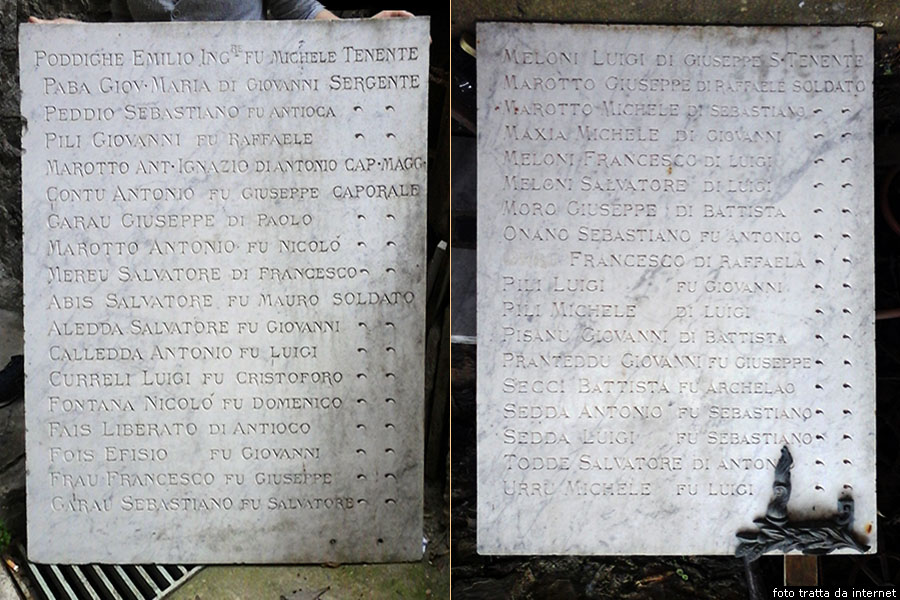 PODDIGHE EMILIO INGRE FU MICHELE TENENTE
PABA GIOV· MARIA DI GIOVANNI SERGENTE
PEDDIO SEBASTIANO FU ANTIOCA " "
PILI GIOVANNI FU RAFFAELE " "
MAROTTO ANT· IGNAZIO DI ANTONIO CAP· MAGG·
CONTU ANTONIO FU GIUSEPPE CAPORALE
GARAU GIUSEPPE DI PAOLO " "
MAROTTO ANTONIO FU NICOLÓ " "
MEREU SALVATORE DI FRANCESCO " "
ABIS SALVATORE FU MAURO SOLDATO
ALEDDA SALVATORE FU GIOVANNI " "
CALLEDDA ANTONIO FU LUIGI " "
CURRELI LUIGI FU CRISTOFORO " "
FONTANA NICOLÓ FU DOMENICO " "
FAIS LIBERATO DI ANTIOCO " "
FOIS EFISIO FU GIOVANNI " "
FRAU FRANCESCO FU GIUSEPPE " "
GARAU SEBASTIANO FU SALVATORE " "
MELONI LUIGI DI GIUSEPPE S· TENENTE
MAROTTO GIUSEPPE DI RAFFAELE SOLDATO
MAROTTO MICHELE DI SEBASTIANO " "
MAXIA MICHELE DI GIOVANNI " "
MELONI FRANCESCO DI LUIGI " "
MELONI SALVATORE DI LUIGI " "
MORO GIUSEPPE DI BATTISTA " "
ONANO SEBASTIANO FU ANTONIO " "
FRANCESCO DI RAFFAELA " "
PILI LUIGI FU GIOVANNI " "
PILI MICHELE DI LUIGI " "
PISANU GIOVANNI DI BATTISTA " "
PRANTEDDU GIOVANNI FU GIUSEPPE " "
SECCI BATTISTA FU ARCHELAO " "
SEDDA ANTONIO FU SEBASTIANO " "
SEDDA LUIGI FU SEBASTIANO " "
TODDE SALVATORE DI ANTONIO " "
URRU MICHELE FU LUIGI " "
foto tratta da internet